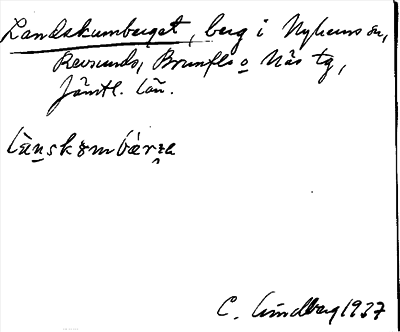 Landskumberget, berg i Nyhems sn,
Revsunds, Brunflo o Näs tg,
Jämtl. län.
länskombärza
C. Lindberg 1937